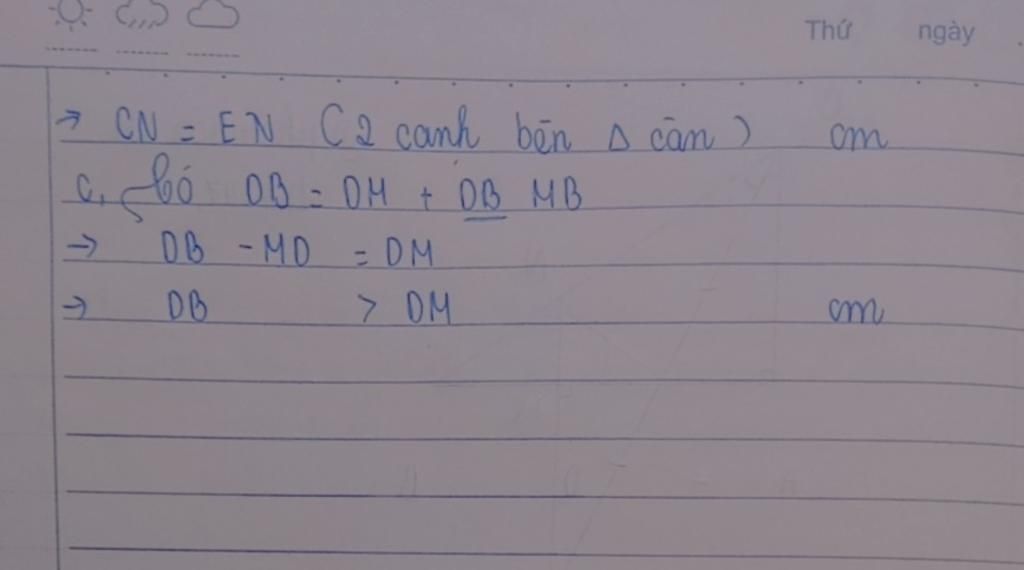 Thứ ngày
→ CN = EN ( 2 canh bên Δ cân ) cm
c, Có DB = DM + DB MB
→ DB - MD = DM
→ DB > DM cm